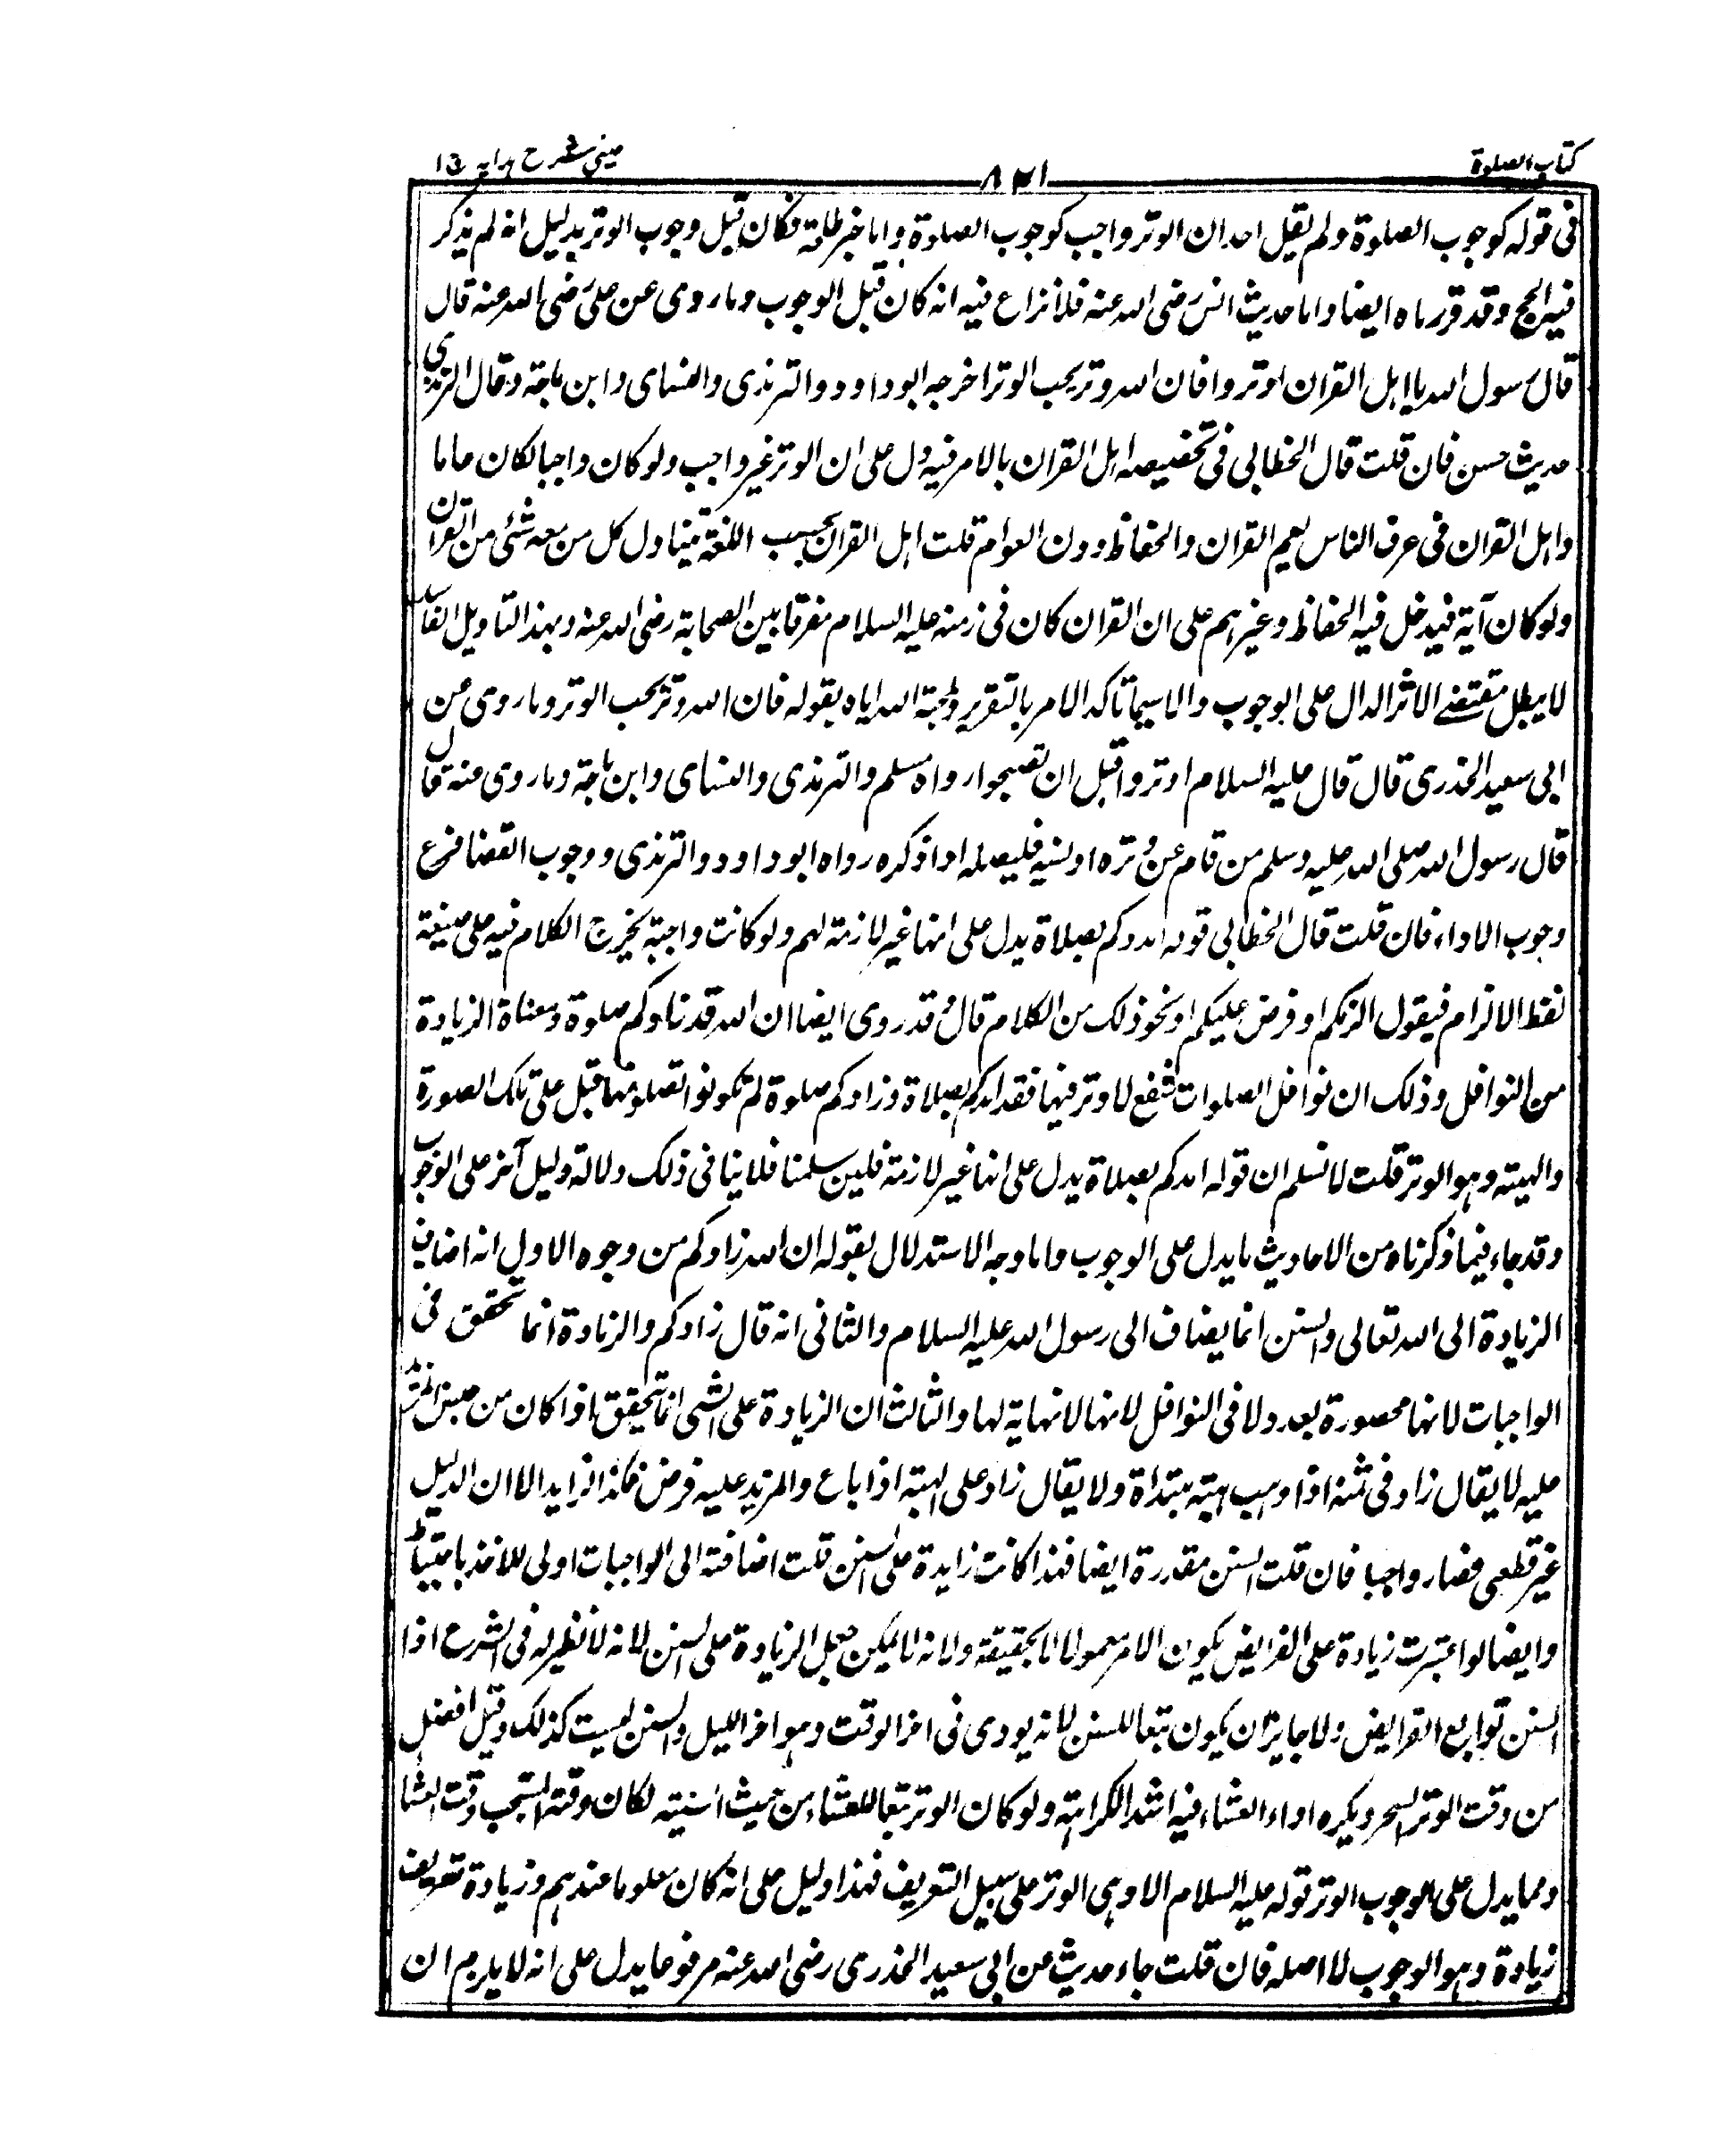 كتاب الصلوة
٨٢١
عينى شرح هدايه ج ١
فى قوله كوجوب الصلوة ولم يقل احد ان الوتر واجب كوجوب الصلوة واما خبر طلحة فكان قبل وجوب الوتر بدليل انه لم يذكر
فيه الحج وقد قررناه ايضا واما حديث انس رضى الله عنه فلا نزاع فيه انه كان قبل الوجوب وما روى عن على رضى الله عنه قال
قال رسول الله يا اهل القران اوتروا فان الله وتر يحب الوتر اخرجه ابو داود والترمذى والنساى وابن ماجة وقال الترمذي
حديث حسن فان قلت قال الخطابى فى تخصيصه اهل القران بالامر فيه دل على ان الوتر غير واجب ولو كان واجبا لكان عاما
واهل القران فى عرف الناس هم القران والحفاظ دون العوام قلت اهل القران بحسب اللغة يتناول كل من معه شئى من القران
ولو كان آية فيدخل فيه الحفاظ وغيرهم على ان القران كان فى زمنه عليه السلام مفرقا بين الصحابة رضى الله عنه وبهذا التاويل الفاسد
لا يبطل مقتضى الاثر الدال على الوجوب والاسيما تاكد الامر بالتقرير ولمحبة الله اياه بقوله فان الله وتر يحب الوتر وما روى عن
ابى سعيد الخذرى قال قال عليه السلام اوتروا قبل ان تصبحوا رواه مسلم والترمذى والنساى وابن ماجة وما روى عنه قال
قال رسول الله صلى الله عليه وسلم من قام عن وتره اونسيه فليصله اذا ذكره رواه ابو داود والترمذى ووجوب القضا فرع
وجوب الاداء فان قلت قال الخطابى قوله امدوكم بصلاة يدل على انها غير لازمة لهم ولو كانت واجبة يخرج الكلام فيه على صيغة
لفظ الالزام فيقول الزمكم او فرض عليكم او نحو ذلك من الكلام قال وقد روى ايضا ان الله قد زادكم صلوة ومعناة الزيادة
من النوافل وذلك ان نوافل الصلوات شفع لا وتر فيها فقد امدكم بصلاة وزادكم صلوة لم تكونوا تصلونها قبل على تلك الصورة
والهيئة وهو الوتر قلت لا نسلم ان قوله امدكم بصلاة يدل على انها غير لازمة فلين سلمنا فلا ينافى ذلك دلالة دليل آخر على الوجوب
وقد جاء فيما ذكرناه من الاحاديث ما يدل على الوجوب واما وجه الاستدلال بقوله ان الله زادكم من وجوه الاول انه اضاف
الزيادة الى الله تعالى والسنن انما يضاف الى رسول الله عليه السلام والثانى انه قال زادكم والزيادة انما تحقق فى
الواجبات لانها محصورة بعدد لا فى النوافل لانها لا نهاية لها والثالث ان الزيادة على الشى انما تحقق اذا كان من جنس المزيد
عليه لا يقال زاد فى ثمنه اذا وهب هبة مبتداة ولا يقال زاد على الهبة اذا باع والمزيد عليه فرض فكذا الزايد الا ان الدليل
غير قطعى فصار واجبا فان قلت السنن مقدرة ايضا فهذا كانت زايدة على السنن قلت اضافته الى الواجبات اولى للاخذ باحتياط
وايضا لو اعتبرت زيادة على الفرايض يكون الامر معمولا لا بحقيقة ولانه لا يمكن جعل الزيادة على السنن لانه لا نظير له فى الشرع اذا
السنن توابع الفرايض ولا جايز ان يكون تبعا للسنن لانه يودى فى اخر الوقت وهو اخر الليل والسنن ليست كذلك وقيل افضل
من وقت الوتر السحر ويكره اداء العشاء فيه اشد الكراهة ولو كان الوتر تبعا للعشاء من حيث السنية لكان وقته المستحب وقت العشا
ومما يدل على وجوب الوتر قوله عليه السلام الا وهى الوتر على سبيل التعريف فهذا دليل على انه كان معلوما عندهم وزيادة تعريف
زيادة وهو الوجوب لا اصله فان قلت جاء حديث عن ابى سعيد الخذرى رضى الله عنه مرفوعا يدل على انه لا يلزم ان